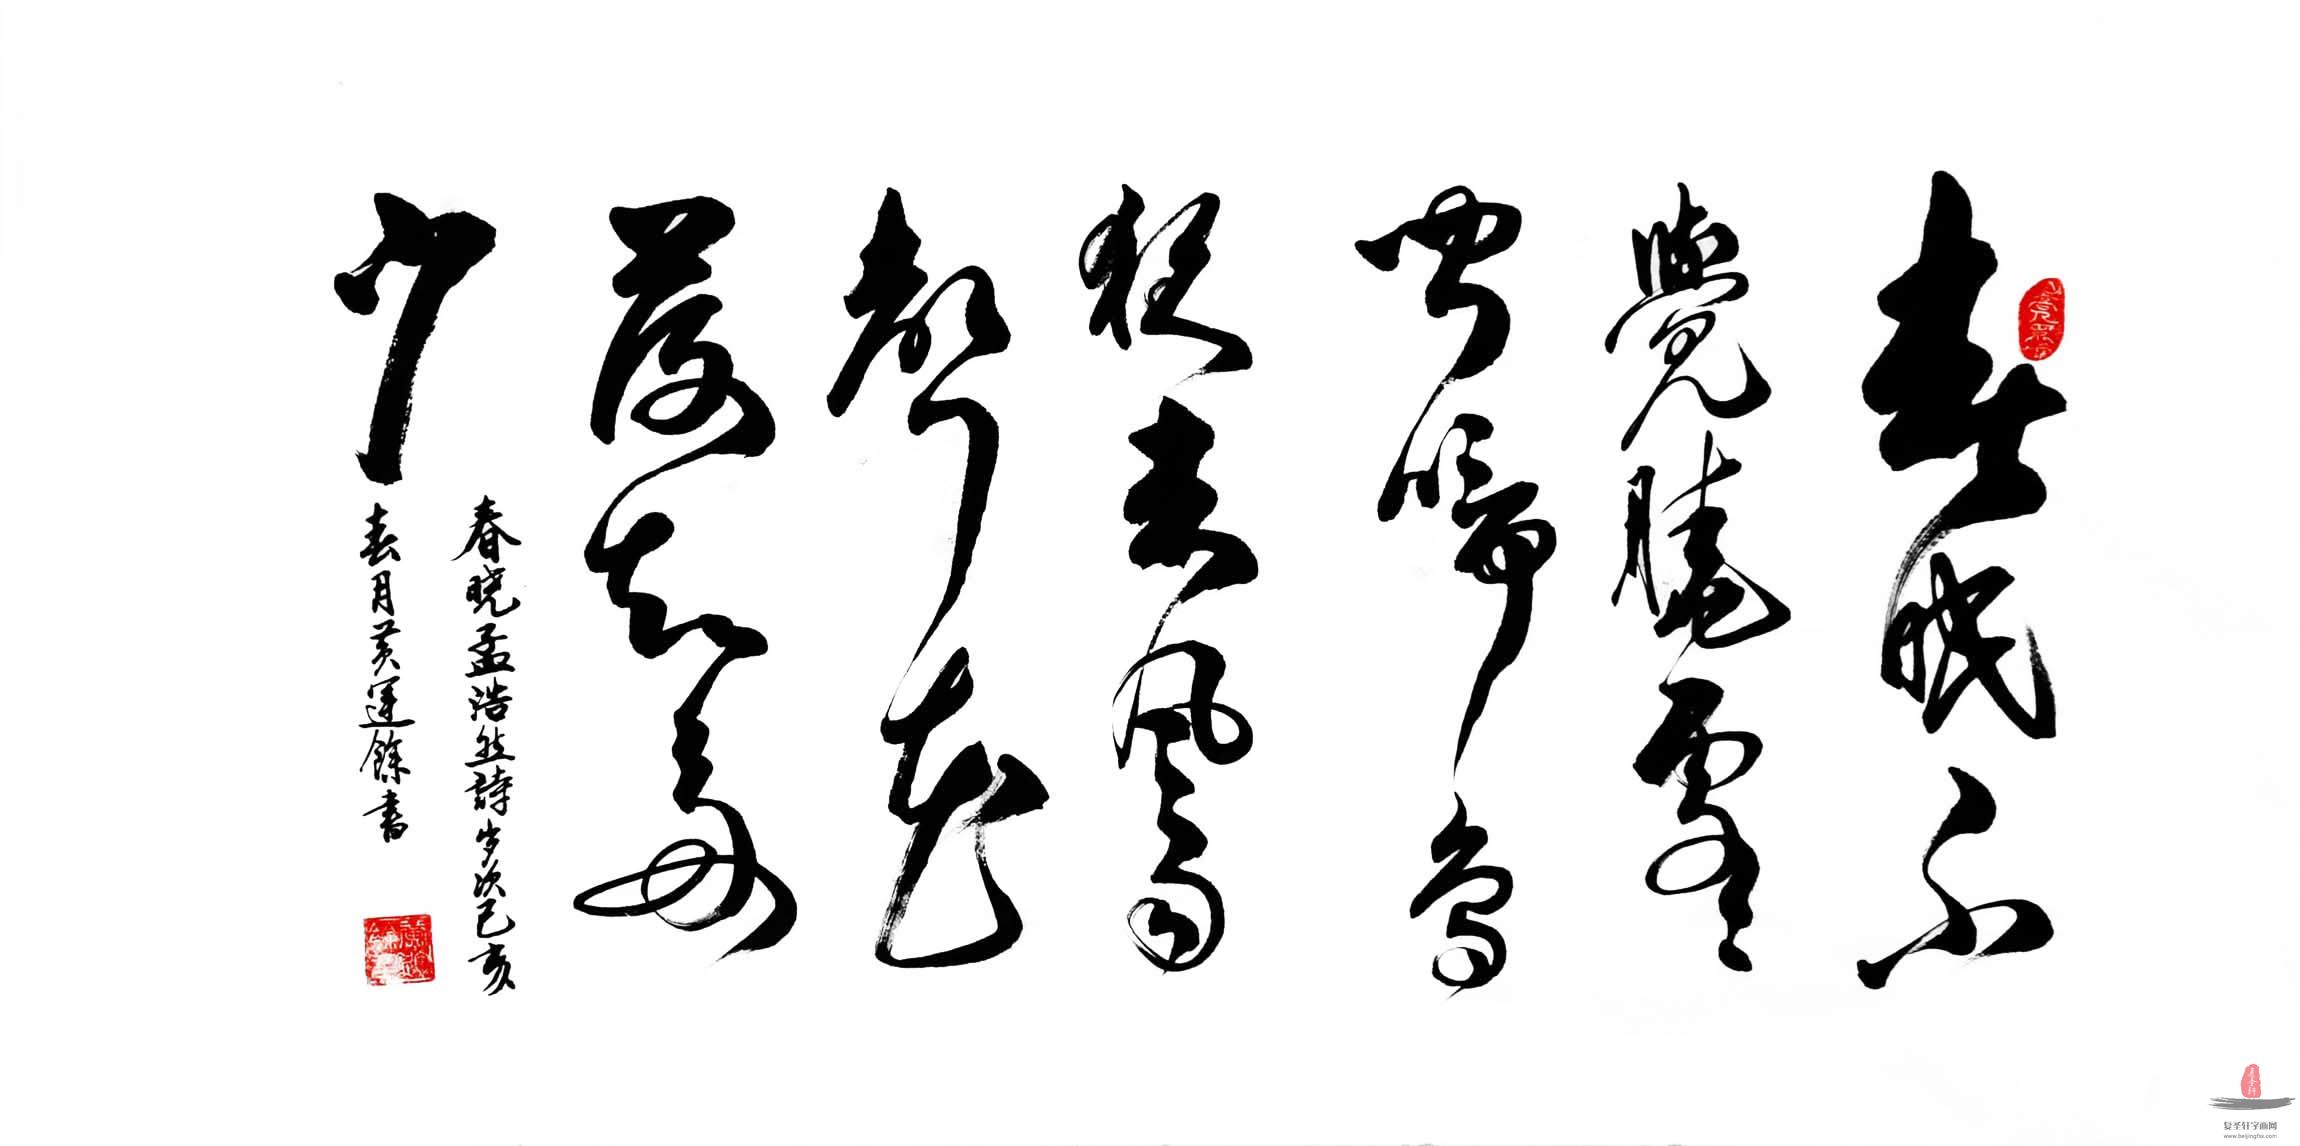 春眠不
覺曉處々
聞啼鳥
夜来風雨
聲花
落知多
少
春晓孟浩然詩岁次己亥
春月黄運餘書
复圣轩字画网
www.beijingfsx.com